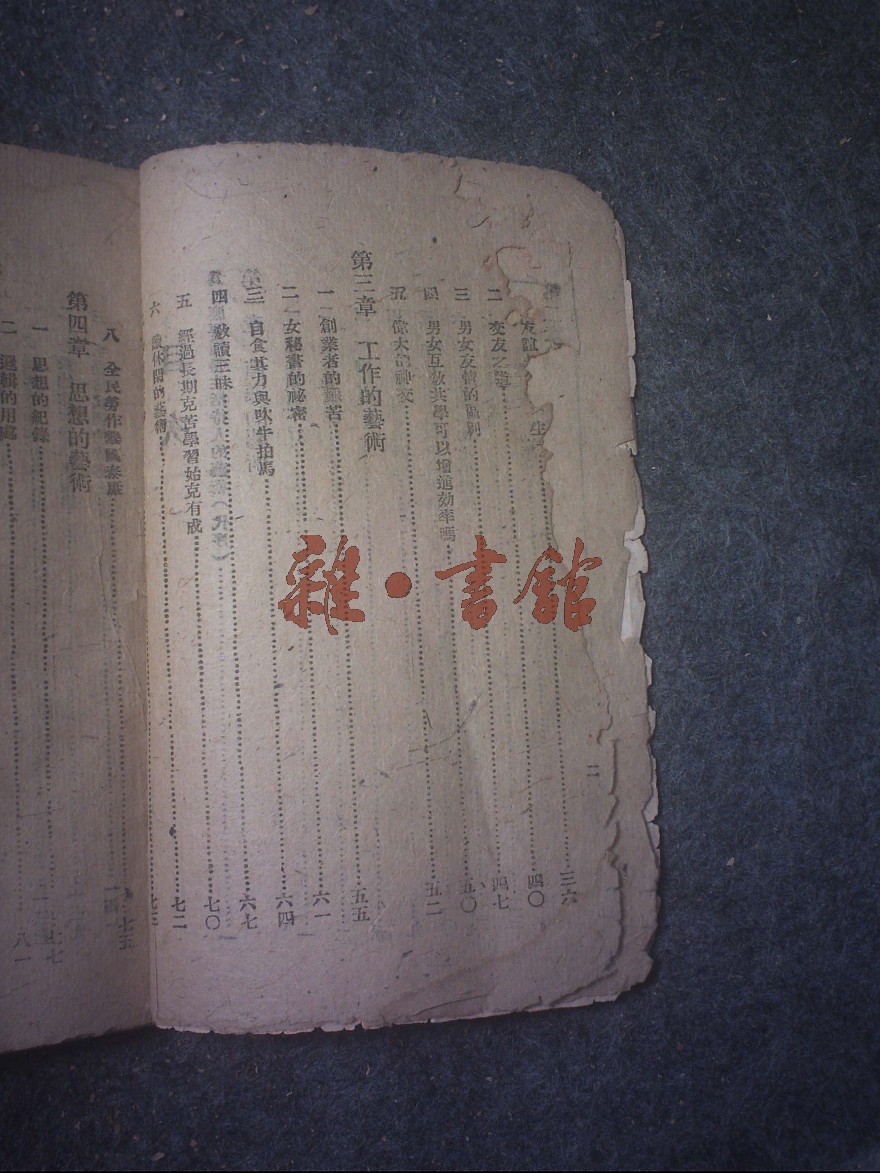 三六
友誼 四〇
二 交友之道 四七
三 男女友情的區別 五〇
四 男女互教共學可以增進効率嗎 五二
五 偉大的神交
第三章 工作的藝術 五五
一 創業者的艱苦 六一
二 女秘書的祕密 六四
三 自食其力與吹牛拍馬 六七
四 教讀三昧 七〇
五 經過長期克苦學習始克有成 七二
六 休閒的藝術
二
八 全民勞作 國泰 七五
第四章 思想的藝術
一 思想的紀錄 七七
二 邏輯的用處 八一
雜·書館